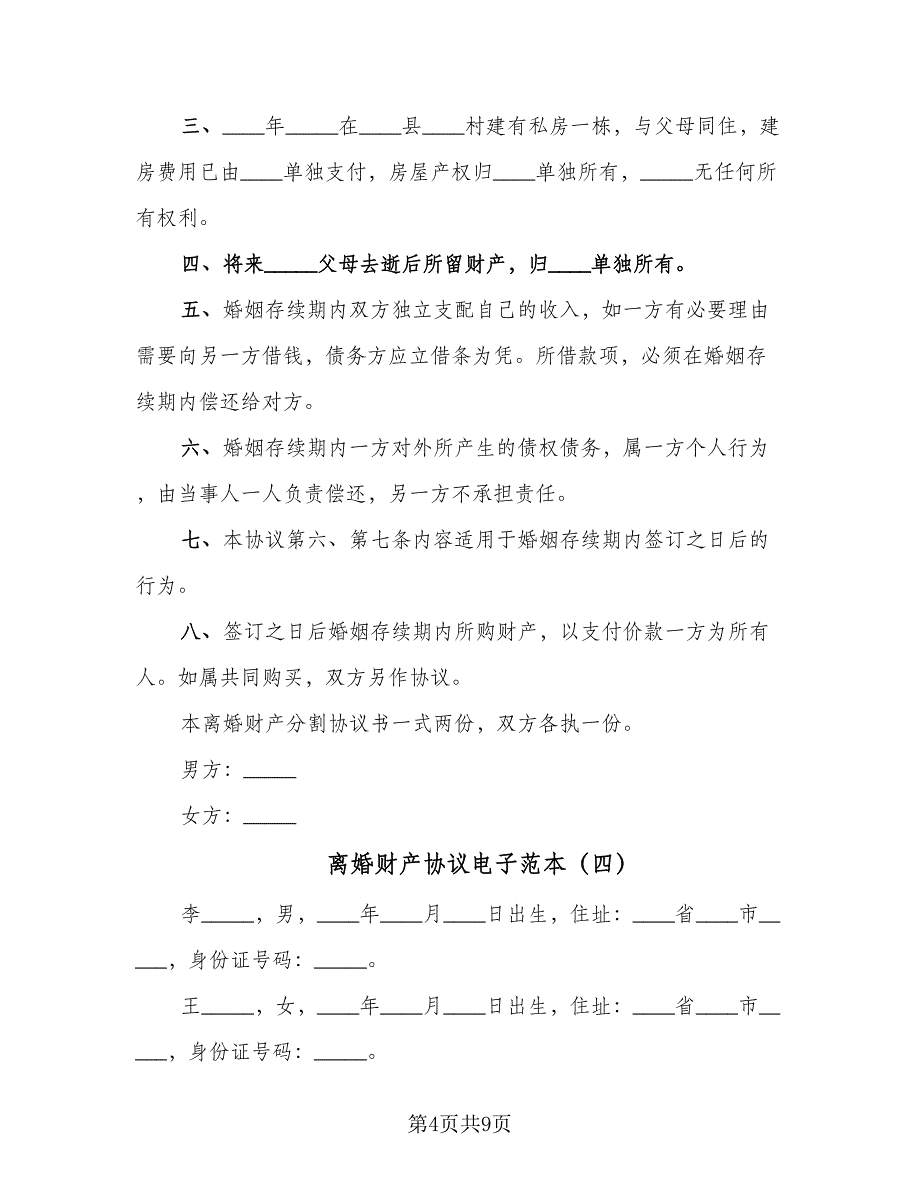 三、____年_____在____县____村建有私房一栋，与父母同住，建
房费用已由____单独支付，房屋产权归____单独所有，_____无任何所
有权利。
四、将来_____父母去逝后所留财产，归____单独所有。
五、婚姻存续期内双方独立支配自己的收入，如一方有必要理由
需要向另一方借钱，债务方应立借条为凭。所借款项，必须在婚姻存
续期内偿还给对方。
六、婚姻存续期内一方对外所产生的债权债务，属一方个人行为
，由当事人一人负责偿还，另一方不承担责任。
七、本协议第六、第七条内容适用于婚姻存续期内签订之日后的
行为。
八、签订之日后婚姻存续期内所购财产，以支付价款一方为所有
人。如属共同购买，双方另作协议。
本离婚财产分割协议书一式两份，双方各执一份。
男方：_____
女方：_____
离婚财产协议电子范本（四）
李_____，男，____年____月____日出生，住址：____省____市__
___，身份证号码：_____。
王_____，女，____年____月____日出生，住址：____省____市__
___，身份证号码：_____。
第4页共9页